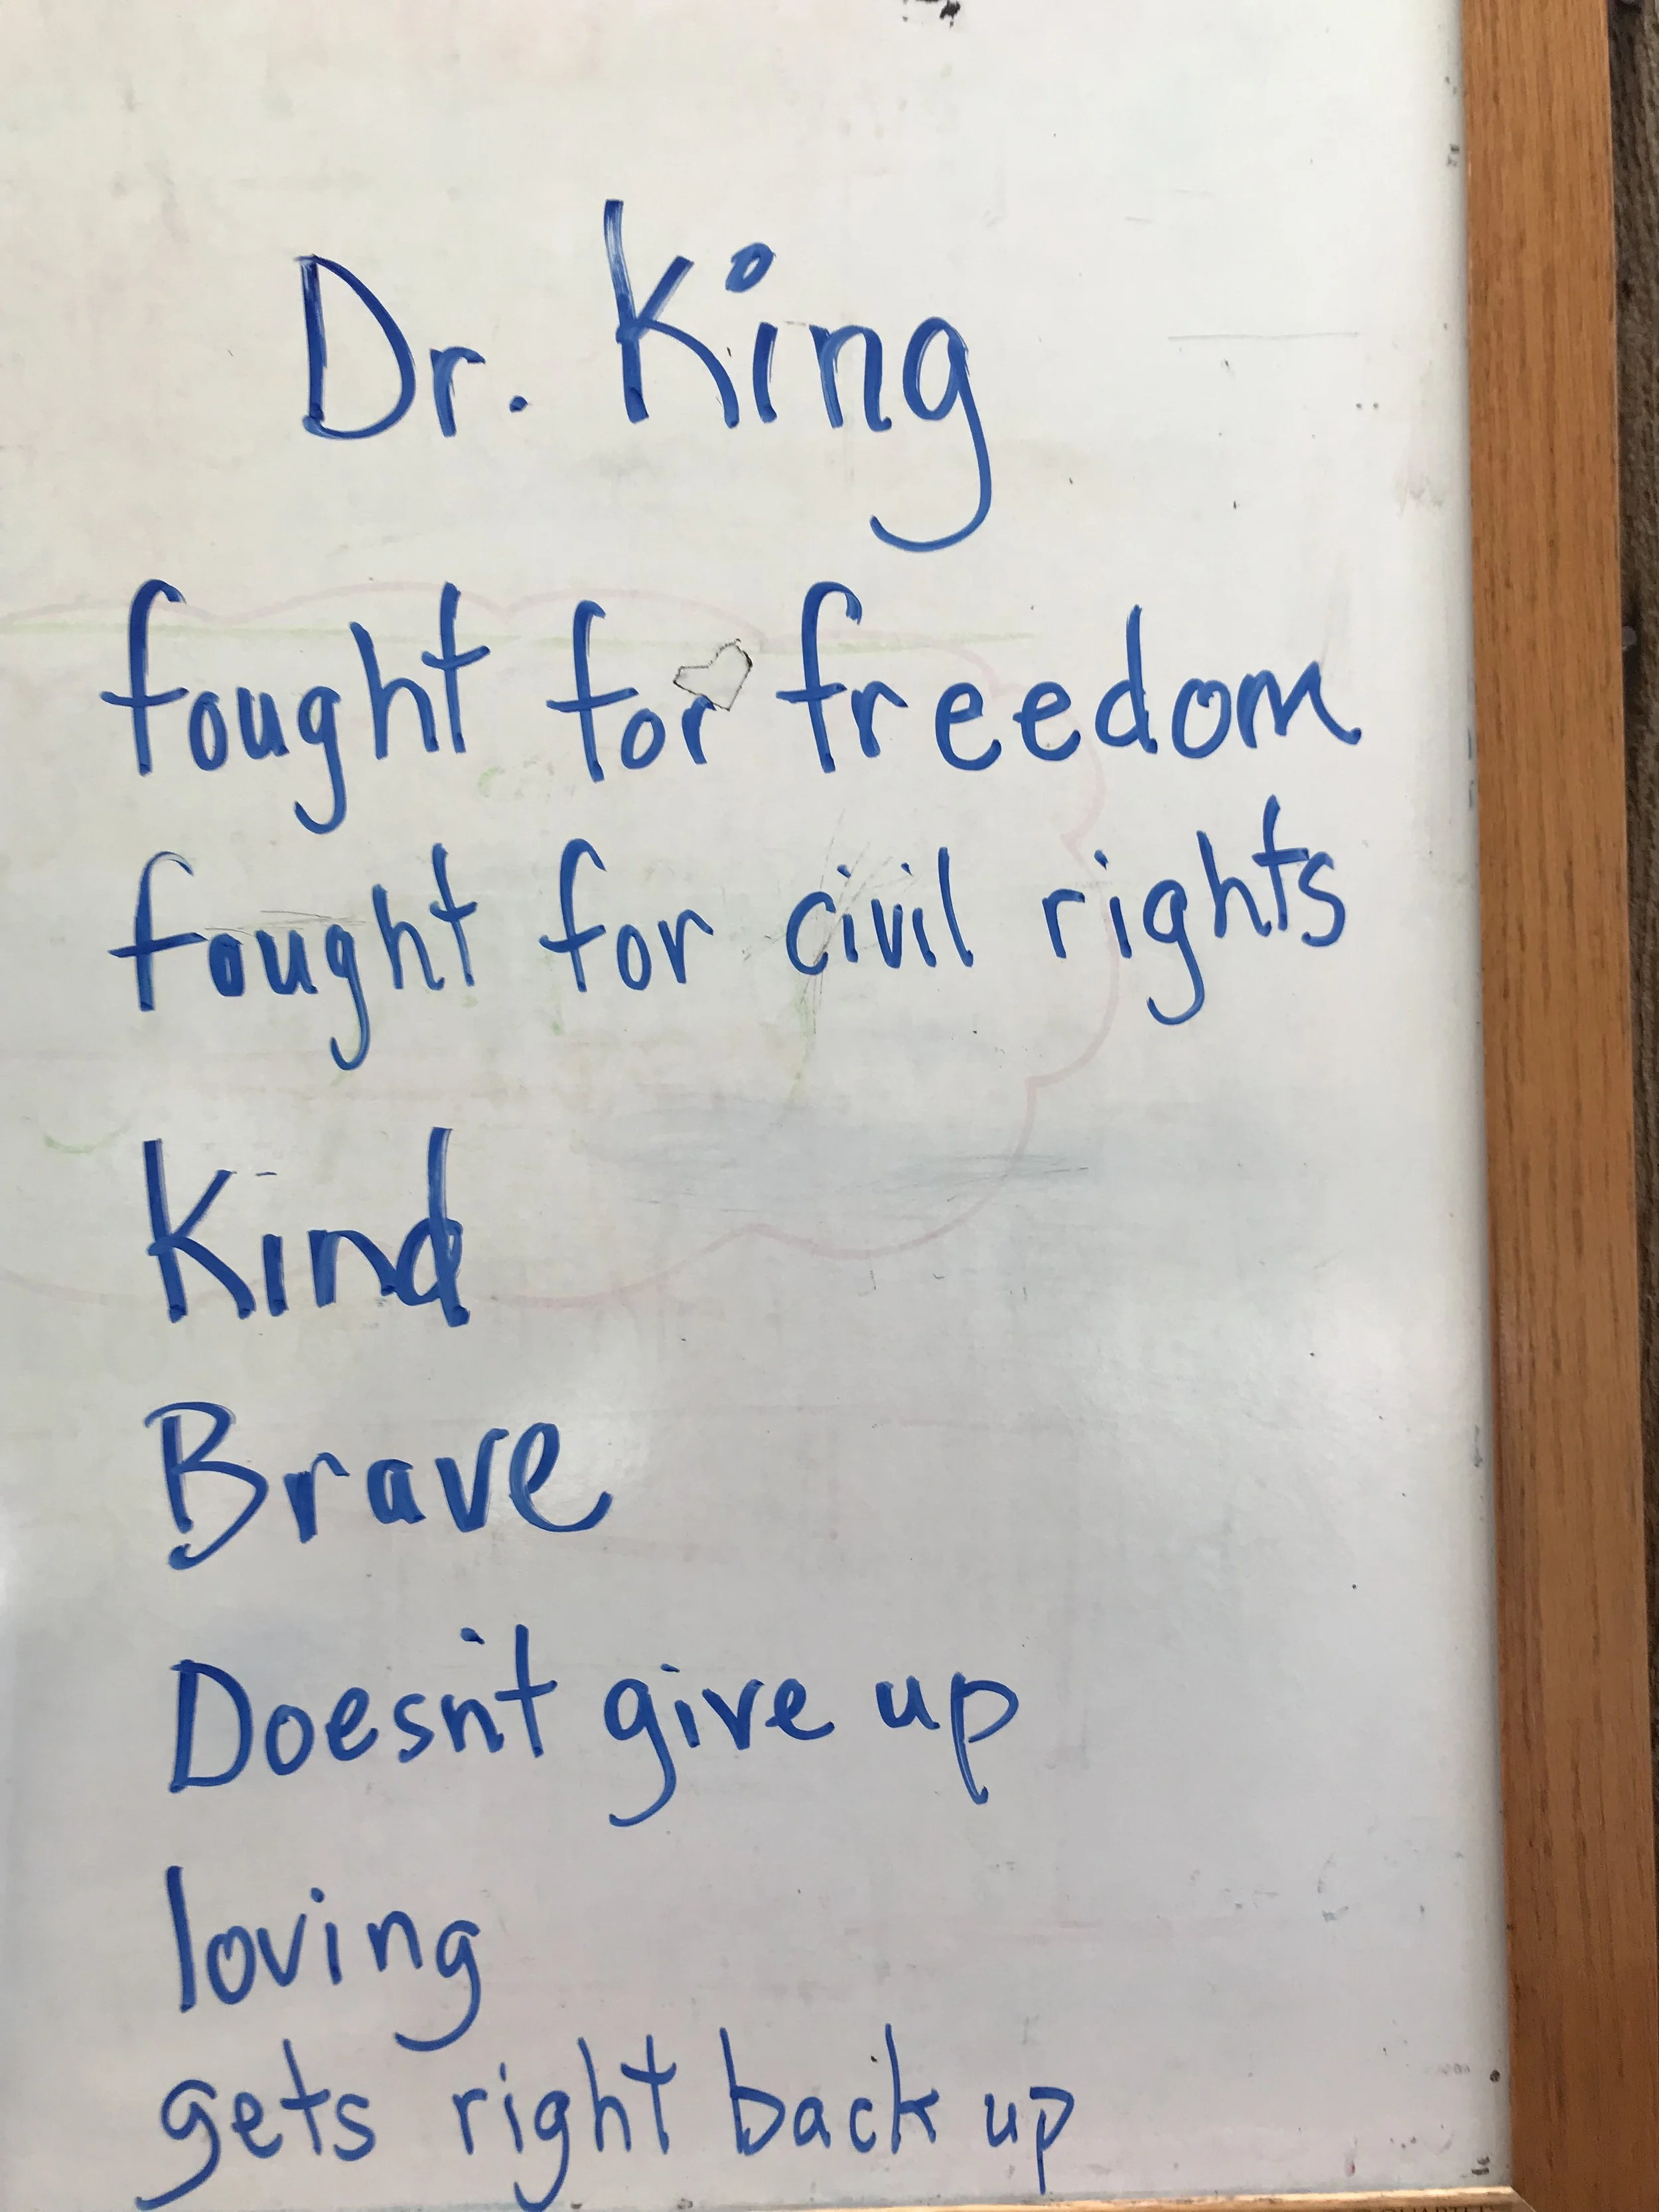 Dr. King
fought for freedom
fought for civil rights
Kind
Brave
Doesn't give up
loving
gets right back up